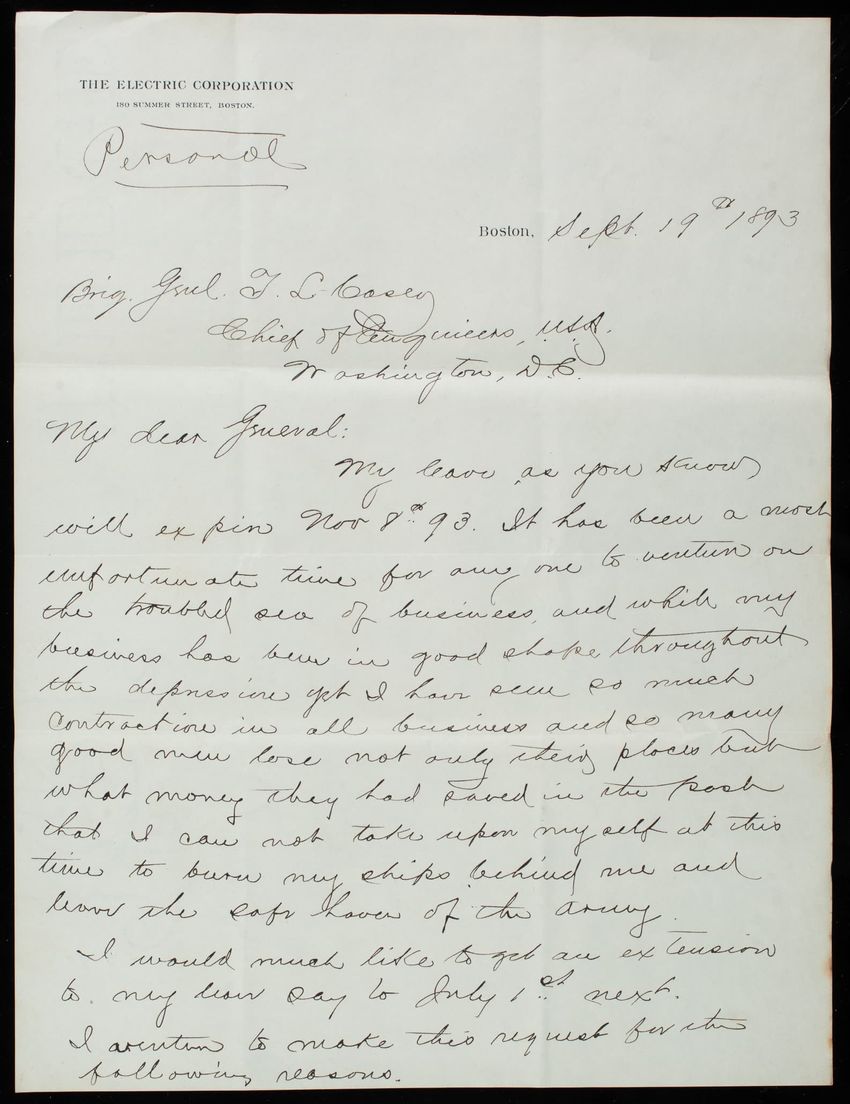 THE ELECTRIC CORPORATION
180 SUMMER STREET, BOSTON.
Personal
Boston, Sept. 19th 1893
Brig. Genl. T. L. Casey
Chief of Engineers, U.S.A.
Washington, D.C.
My dear General:
My leave as you know
will expire Nov 8th 93. It has been a most
unfortunate time for any one to venture on
the troubled sea of business, and while my
business has been in good shape throughout
the depression yet I have seen so much
contraction in all business and so many
good men lose not only their places but
what money they had saved in the past
that I can not take upon myself at this
time to burn my ships behind me and
leave the safe haven of the army.
I would much like to get an extension
to my leave say to July 1st next.
I venture to make this request for the
following reasons.